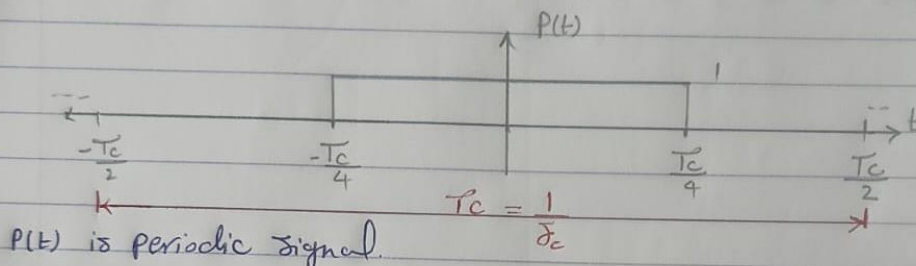 P(t)
1
-- --
-Tc/2 -Tc/4 Tc/4 Tc/2 t
Tc = 1/fc
P(t) is periodic signal.